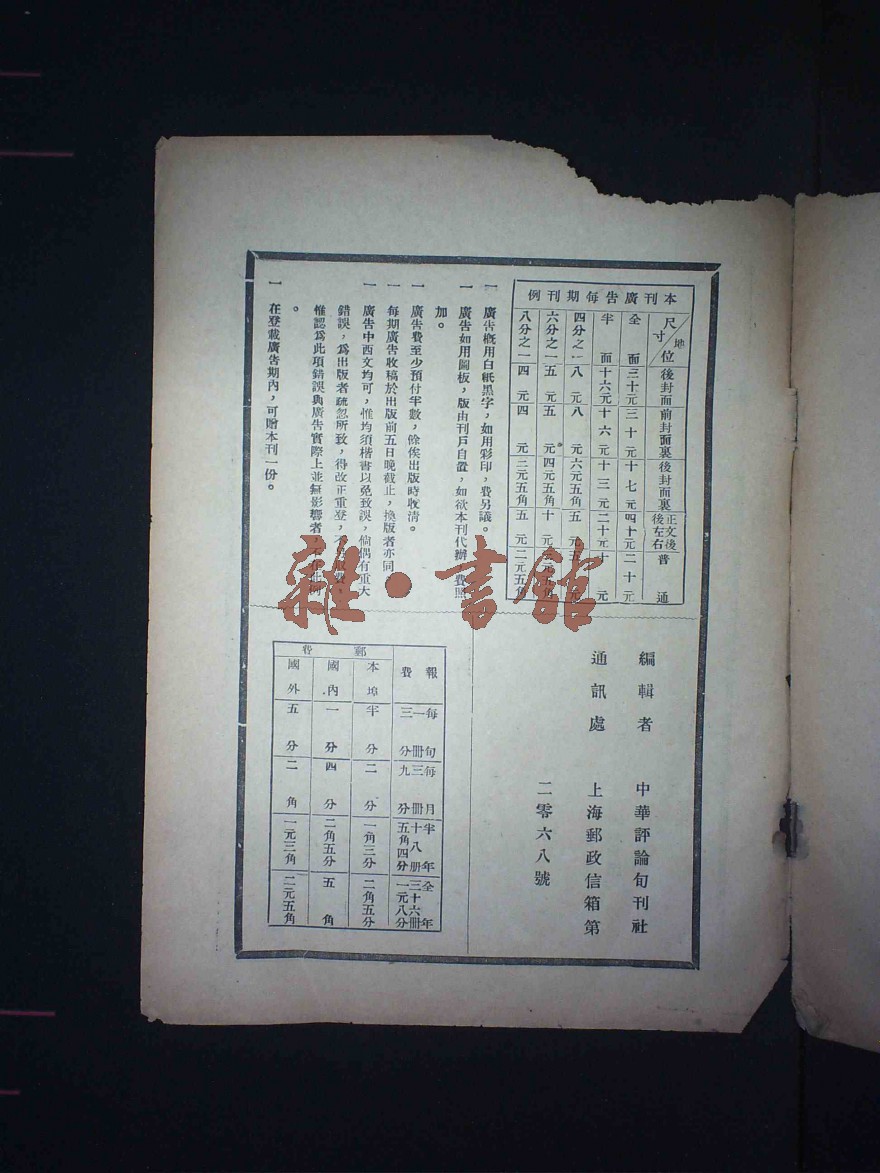 本刊廣告每期刊例
尺寸 地位 後封面 前封面裏 後封面裏 正文後後左右 普通
全面 三十元 三十元 十七元 四十元 二十元
半面 十六元 十六元 十三元 二十元 十元
四分之一 八元 八元 六元五角
六分之一 五元 五元 四元五角
八分之一 四元 四元 三元五角 五元 二元五角
一 廣告概用白紙黑字，如用彩印，費另議。
一 廣告如用圖板，版由刊戶自置，如欲本刊代辦，費照
加。
一 廣告費至少預付半數，餘俟出版時收清。
一 每期廣告收稿於出版前五日晚截止，換版者亦同
一 廣告中西文均可，惟均須楷書以免致誤，倘偶有重大
錯誤，爲出版者疏忽所致，得改正重登，不另取費。
惟認爲此項錯誤與廣告實際上並無影響者，不在此例
。
一 在登載廣告期內，可贈本刊一份。
編輯者 中華評論旬刊社
通訊處 上海郵政信箱第
二零六八號
報費 每旬一册三分 每月三册九分 半年十八册五角四分 全年三十六册一元八分
郵費
本埠 半分 二分 一角三分 二角五分
國內 一分 四分 二角五分 五角
國外 五分 二角 一元三角 二元五角
雜·書館